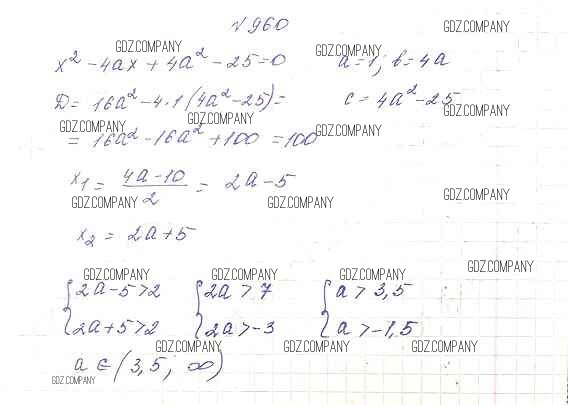 N 960
GDZ.COMPANY
GDZ.COMPANY GDZ.COMPANY
x² - 4ax + 4a² - 25 = 0 a = 1; b = 4a
D = 16a² - 4·1(4a² - 25) = c = 4a² - 25
GDZ.COMPANY GDZ.COMPANY GDZ.COMPANY GDZ.COMPANY
= 16a² - 16a² + 100 = 100
x₁ = (4a - 10)/2 = 2a - 5
GDZ.COMPANY GDZ.COMPANY GDZ.COMPANY
x₂ = 2a + 5
GDZ.COMPANY GDZ.COMPANY GDZ.COMPANY GDZ.COMPANY
{2a - 5 > 2 {2a > 7 {a > 3,5
2a + 5 > 2 2a > -3 a > -1,5
GDZ.COMPANY GDZ.COMPANY GDZ.COMPANY
a ∈ (3,5; ∞)
GDZ.COMPANY